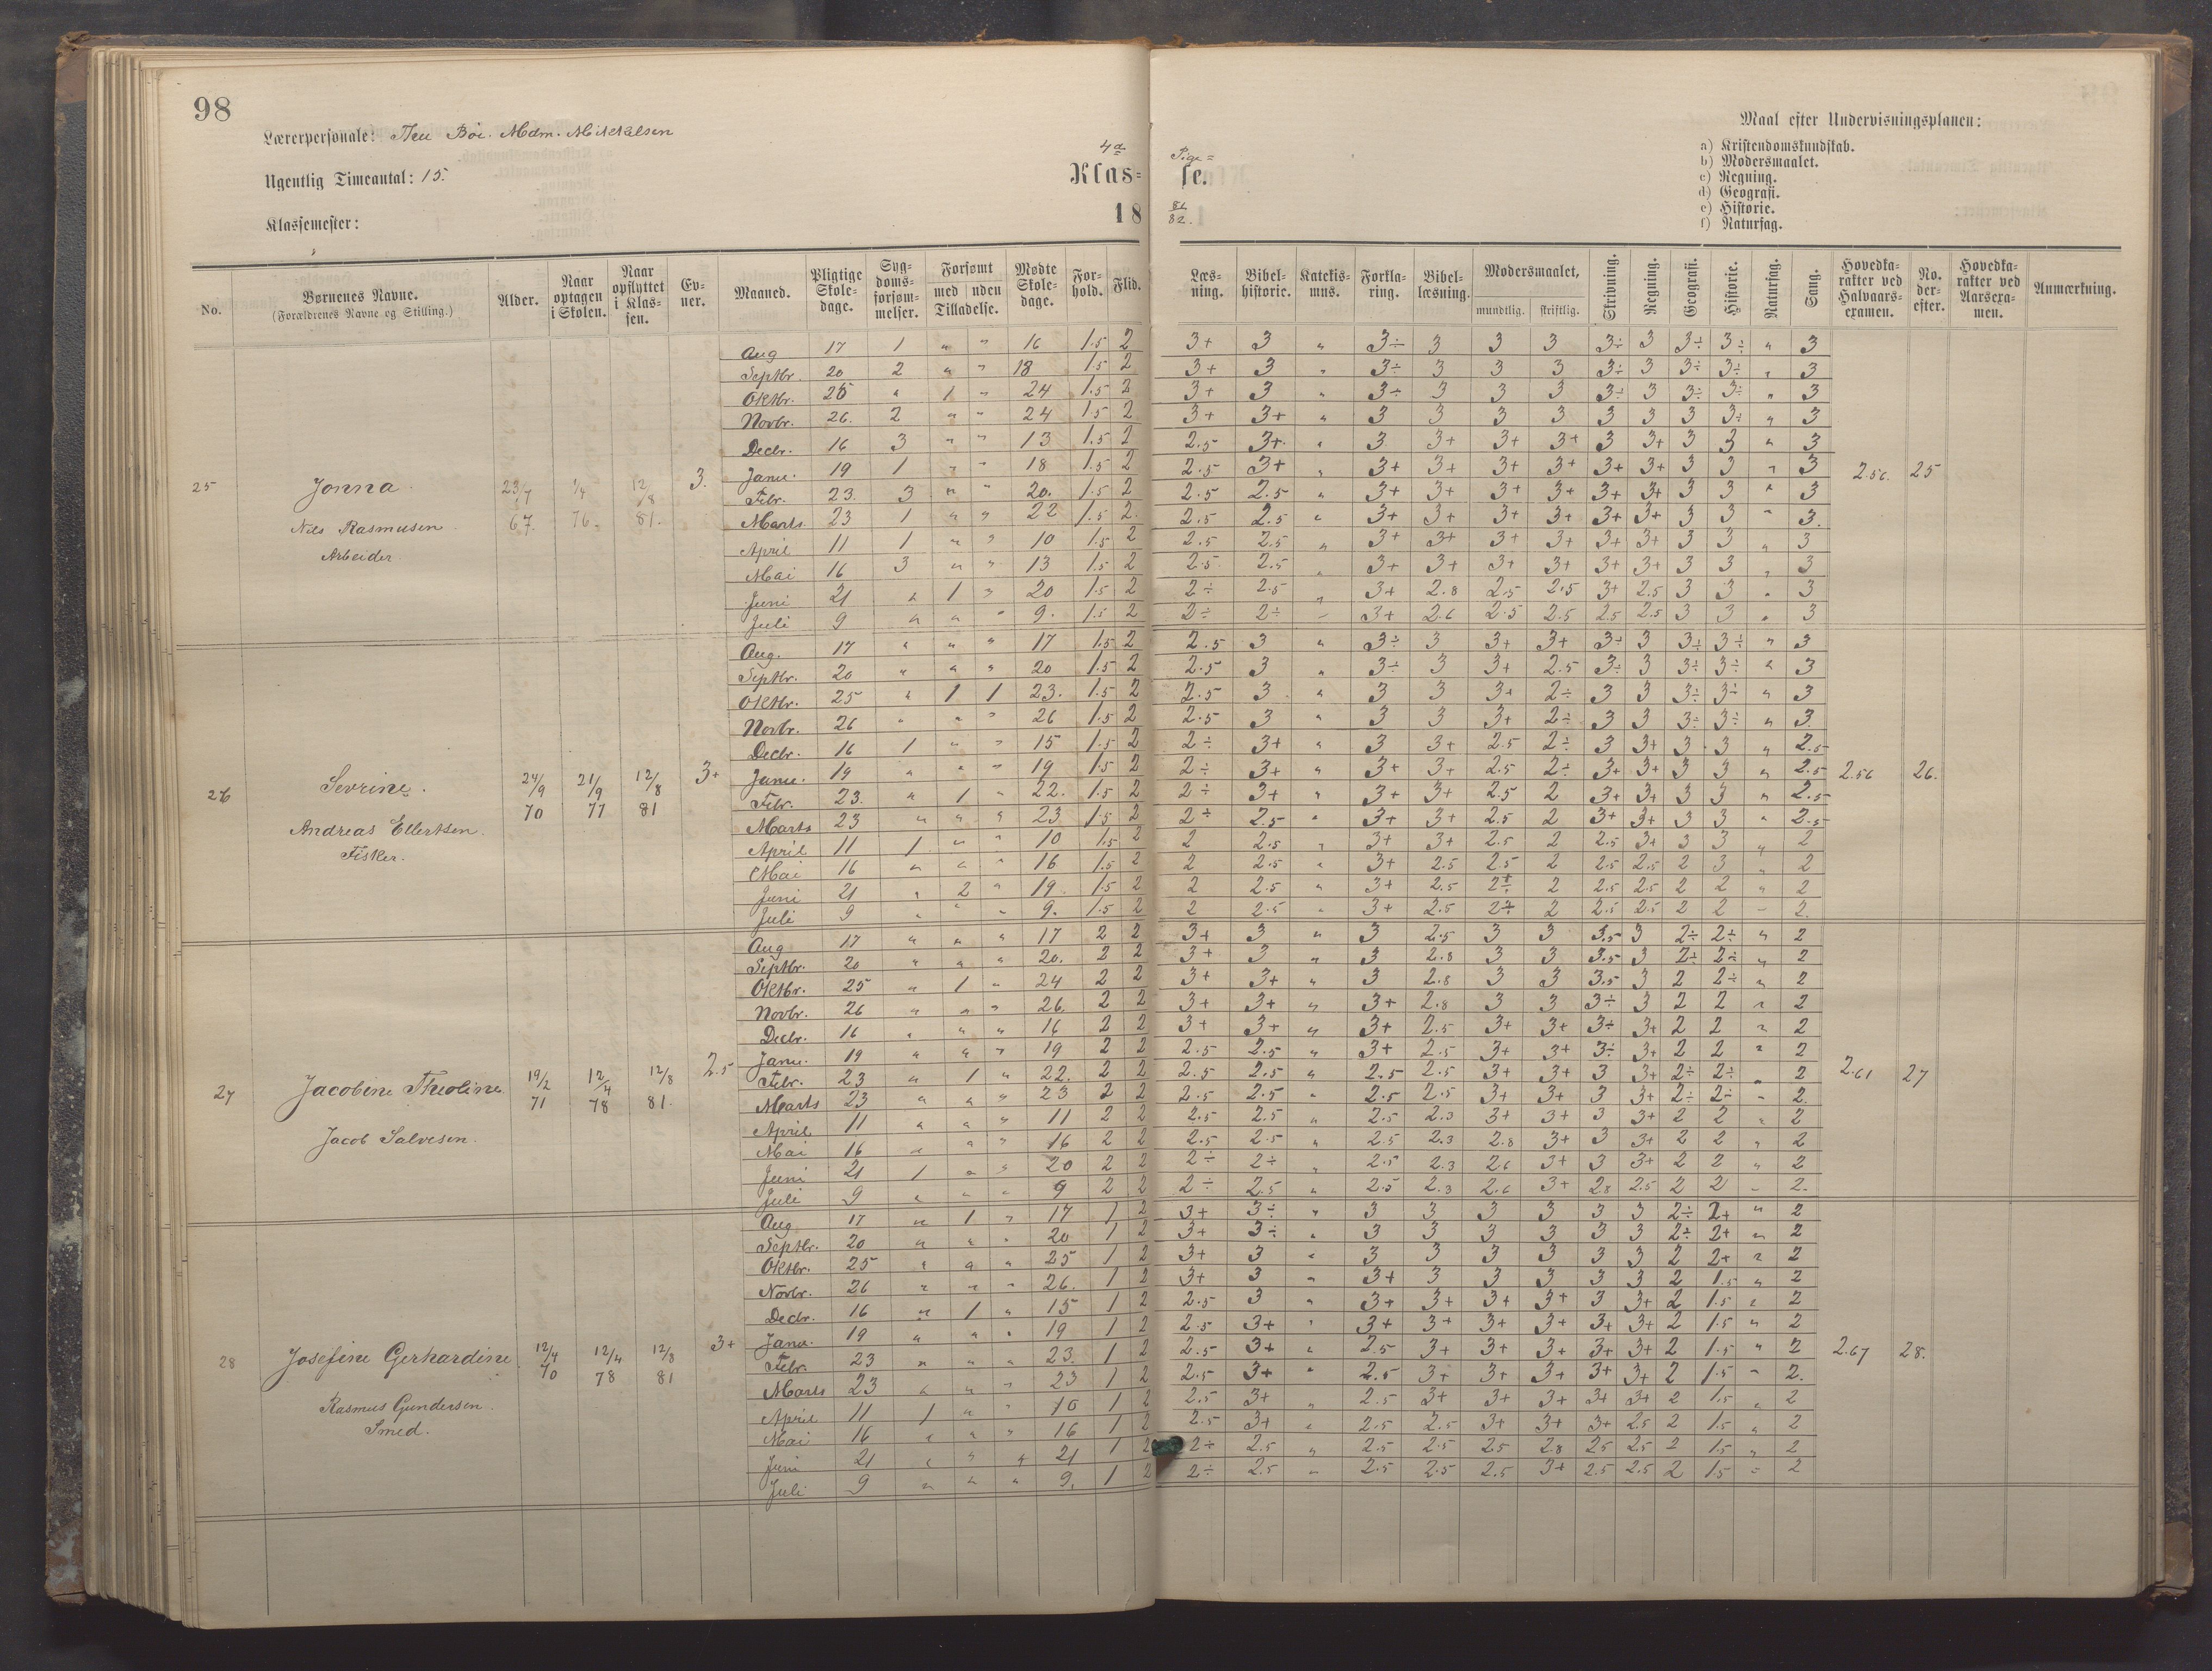 98
Lærerpersonale: Thu Bøe. Mdm. Mikkalsen
Ugentlig Timeantal: 15.
Klassemester:
4de Pige=
Klas= se.
18 81/82.
Maal efter Undervisningsplanen:
a) Kristendomskundskab.
b) Modersmaalet.
c) Regning.
d) Geografi.
e) Historie.
f) Naturfag.
No. | Børnenes Navne. (Forældrenes Navne og Stilling.) | Alder. | Naar optagen i Skolen. | Naar opflyttet i Klas-sen. | Ev-ner. | Maaned. | Pligtige Skole-dage. | Syg-doms-forsøm-melser. | Forsømt med uden Tilladelse. | Mødte Skole-dage. | For-hold. | Flid. | Læs-ning. | Bibel-historie. | Katekis-mus. | Forkla-ring. | Bibel-læsning. | Modersmaalet, mundtlig. skriftlig. | Skrivning. | Regning. | Geografi. | Historie. | Naturfag. | Sang. | Hovedka-rakter ved Halvaars-examen. | No. der-efter. | Hovedka-rakter ved Aarsexa-men. | Anmærkning.
25 Jonna. Nils Rasmusen Arbeider 23/7 67. 1/4 76. 12/8 81. 3. 2.56. 25
Aug 17 1 " " 16 1.5 2 3+ 3 " 3÷ 3 3 3 3÷ 3 3÷ 3÷ " 3
Septbr. 20 2 " " 18 1.5 2 3+ 3 " 3÷ 3 3 3 3÷ 3 3÷ 3÷ " 3
Oktbr. 25 " 1 " 24 1.5 2 3+ 3 " 3÷ 3 3 3 3÷ 3 3÷ 3÷ " 3
Novbr. 26. 2 " " 24 1.5 2 3+ 3+ " 3 3 3 3 3 3 3 3÷ " 3
Decbr. 16 3 " " 13 1.5 2 2.5 3+ " 3 3+ 3+ 3+ 3 3+ 3 3 " 3
Janu. 19 1 " " 18 1.5 2 2.5 3+ " 3+ 3+ 3+ 3+ 3+ 3+ 3 3 " 3
Febr. 23. 3 " " 20. 1.5 2 2.5 2.5 " 3+ 3+ 3+ 3+ 3+ 3+ 3 3 " 3
Marts 23 1 " " 22 1.5 2. 2.5 2.5 " 3+ 3+ 3+ 3+ 3+ 3+ 3 3 " 3.
April 11 1 " " 10 1.5 2 2.5 2.5 " 3+ 3+ 3+ 3+ 3+ 3+ 3 3 " 3
Mai 16 3 " " 13 1.5 2 2.5 2.5 " 3+ 3+ 3+ 3+ 3+ 3+ 3 3 " 3
Juni 21 " 1 " 20 1.5 2 2÷ 2.5 " 3+ 2.8 2.5 2.5 3+ 2.5 3 3 " 3
Juli 9 " " " 9. 1.5 2 2÷ 2÷ " 3+ 2.6 2.5 2.5 2.5 2.5 3 3 " 3
26 Sevrine. Andreas Ellertsen. Fisker. 24/9 70 21/9 77 12/8 81 3+ 2.56 26.
Aug. 17 " " " 17 1.5 2 2.5 3 " 3÷ 3 3+ 3+ 3÷ 3 3÷ 3÷ " 3
Septbr. 20 " " " 20 1.5 2 2.5 3 " 3÷ 3 3+ 2.5 3÷ 3 3÷ 3÷ " 3
Oktbr. 25 " 1 1 23. 1.5 2 2.5 3 " 3 3 3+ 2÷ 3 3 3÷ 3÷ " 3
Novbr. 26 " " " 26 1.5 2 2.5 3 " 3 3 3+ 2÷ 3 3 3÷ 3÷ " 3
Decbr. 16 1 " " 15 1.5 2 2÷ 3+ " 3 3+ 2.5 2÷ 3 3+ 3 3 " 2.5
Janu. 19 " " " 19 1.5 2 2÷ 3+ " 3+ 3+ 2.5 2÷ 3+ 3+ 3 3 " 2.5
Febr. 23. " 1 " 22. 1.5 2 2÷ 3+ " 3+ 3+ 2.5 2 3+ 3+ 3 3 " 2.5
Marts 23 " " " 23 1.5 2 2÷ 2.5 " 3+ 3+ 2.5 2 3+ 3+ 3 3 " 2.5
April 11 1 " " 10 1.5 2 2 2.5 " 3+ 3+ 2.5 2 2.5 3+ 3 3 " 2
Mai 16 " " " 16 1.5 2 2 2.5 " 3+ 2.5 2.5 2 2.5 2.5 2 3 " 2
Juni 21 " 2 " 19. 1.5 2 2 2.5 " 3+ 2.5 2 2 2.5 2.5 2 2 " 2
Juli 9 " " " 9. 1.5 2 2 2.5 " 3+ 2.5 2 2 2.5 2.5 2 2 " 2.
27 Jacobine Theoline Jacob Salvesen. 19/2 71 12/4 78 12/8 81. 2.5 2.61 27
Aug 17 " " " 17 2 2 3+ 3 " 3 2.5 3 3 3.5 3 2÷ 2÷ " 2
Septbr. 20 " " " 20. 2 2 3+ 3 " 3 2.8 3 3 3.5 3 2÷ 2÷ " 2
Oktbr. 25 " 1 " 24 2 2 3+ 3+ " 3 2.8 3 3 3.5 3 2 2÷ " 2
Novbr. 26 " " " 26. 2 2 3+ 3+ " 3+ 2.8 3 3 3÷ 3 2 2 " 2
Decbr. 16 " " " 16 2 2 3+ 3+ " 3+ 2.5 3+ 3+ 3÷ 3+ 2 2 " 2
Janu. 19 " " " 19 2 2 2.5 2.5 " 3+ 2.5 3+ 3+ 3÷ 3+ 2 2 " 2
Febr. 23 " 1 " 22. 2 2 2.5 2.5 " 2.5 2.5 3+ 3+ 3 3+ 2÷ 2÷ " 2
Marts 23 " " " 23 2 2 2.5 2.5 " 2.5 2.5 3+ 3+ 3 3+ 2÷ 2÷ " 2.
April 11 " " " 11 2 2 2.5 2.5 " 2.5 2.3 3+ 3+ 3 3+ 2 2 " 2
Mai 16 " " " 16 2 2 2.5 2.5 " 2.5 2.3 2.8 3+ 3 3+ 2 2 " 2
Juni 21 1 " " 20 2 2 2÷ 2÷ " 2.5 2.3 2.6 3+ 3 3+ 2 2 " 2
Juli 9 " " " 9 2 2 2÷ 2.5 " 2.5 2.3 2.6 3+ 2.8 2.5 2 2 " 2.
28 Josefine Gerhardine Rasmus Gundersen. Smed. 12/4 70 12/4 78 12/8 81 3+ 2.67 28.
Aug 17 " 1 " 17 1 2 3+ 3÷ " 3 3 3 3 3 3 2÷ 2+ " 2
Septbr. 20 " " " 20 1 2 3+ 3÷ " 3 3 3 3 3 3 2÷ 2+ " 2
Oktbr. 25 " " " 25 1 2 3+ 3 " 3 3 3 3 3 3 2 2+ " 2
Novbr. 26 " " " 26. 1 2 3+ 3 " 3+ 3 3 3 3 3 2 1.5 " 2
Decbr. 16 " 1 " 15 1 2 2.5 3 " 3+ 3+ 3+ 3+ 3 3+ 2 1.5 " 2
Janu. 19 " " " 19 1 2 2.5 3+ " 3+ 3+ 3+ 3+ 3+ 3+ 2 1.5 " 2
Febr. 23 " " " 23. 1 2 2.5 3+ " 2.5 3+ 3+ 3+ 3+ 3+ 2 1.5 " 2
Marts 23 " " " 23 1 2 2.5 3+ " 2.5 3+ 3+ 3+ 3+ 3+ 2 1.5 " 2.
April 11 1 " " 10 1 2 2.5 3+ " 2.5 3+ 3+ 3+ 3+ 3+ 2 1.5 " 2
Mai 16 " " " 16 1 2 2.5 3+ " 2.5 2.5 3+ 3+ 3+ 2.5 2 1.5 " 2
Juni 21 " " " 21 1 2 2÷ 2.5 " 2.5 2.5 2.5 2.8 2.5 2.5 2 1.5 " 2
Juli 9 " " " 9. 1 2 2÷ 2.5 " 2.5 2.5 2.5 3+ 2.5 2.5 2 1.5 " 2